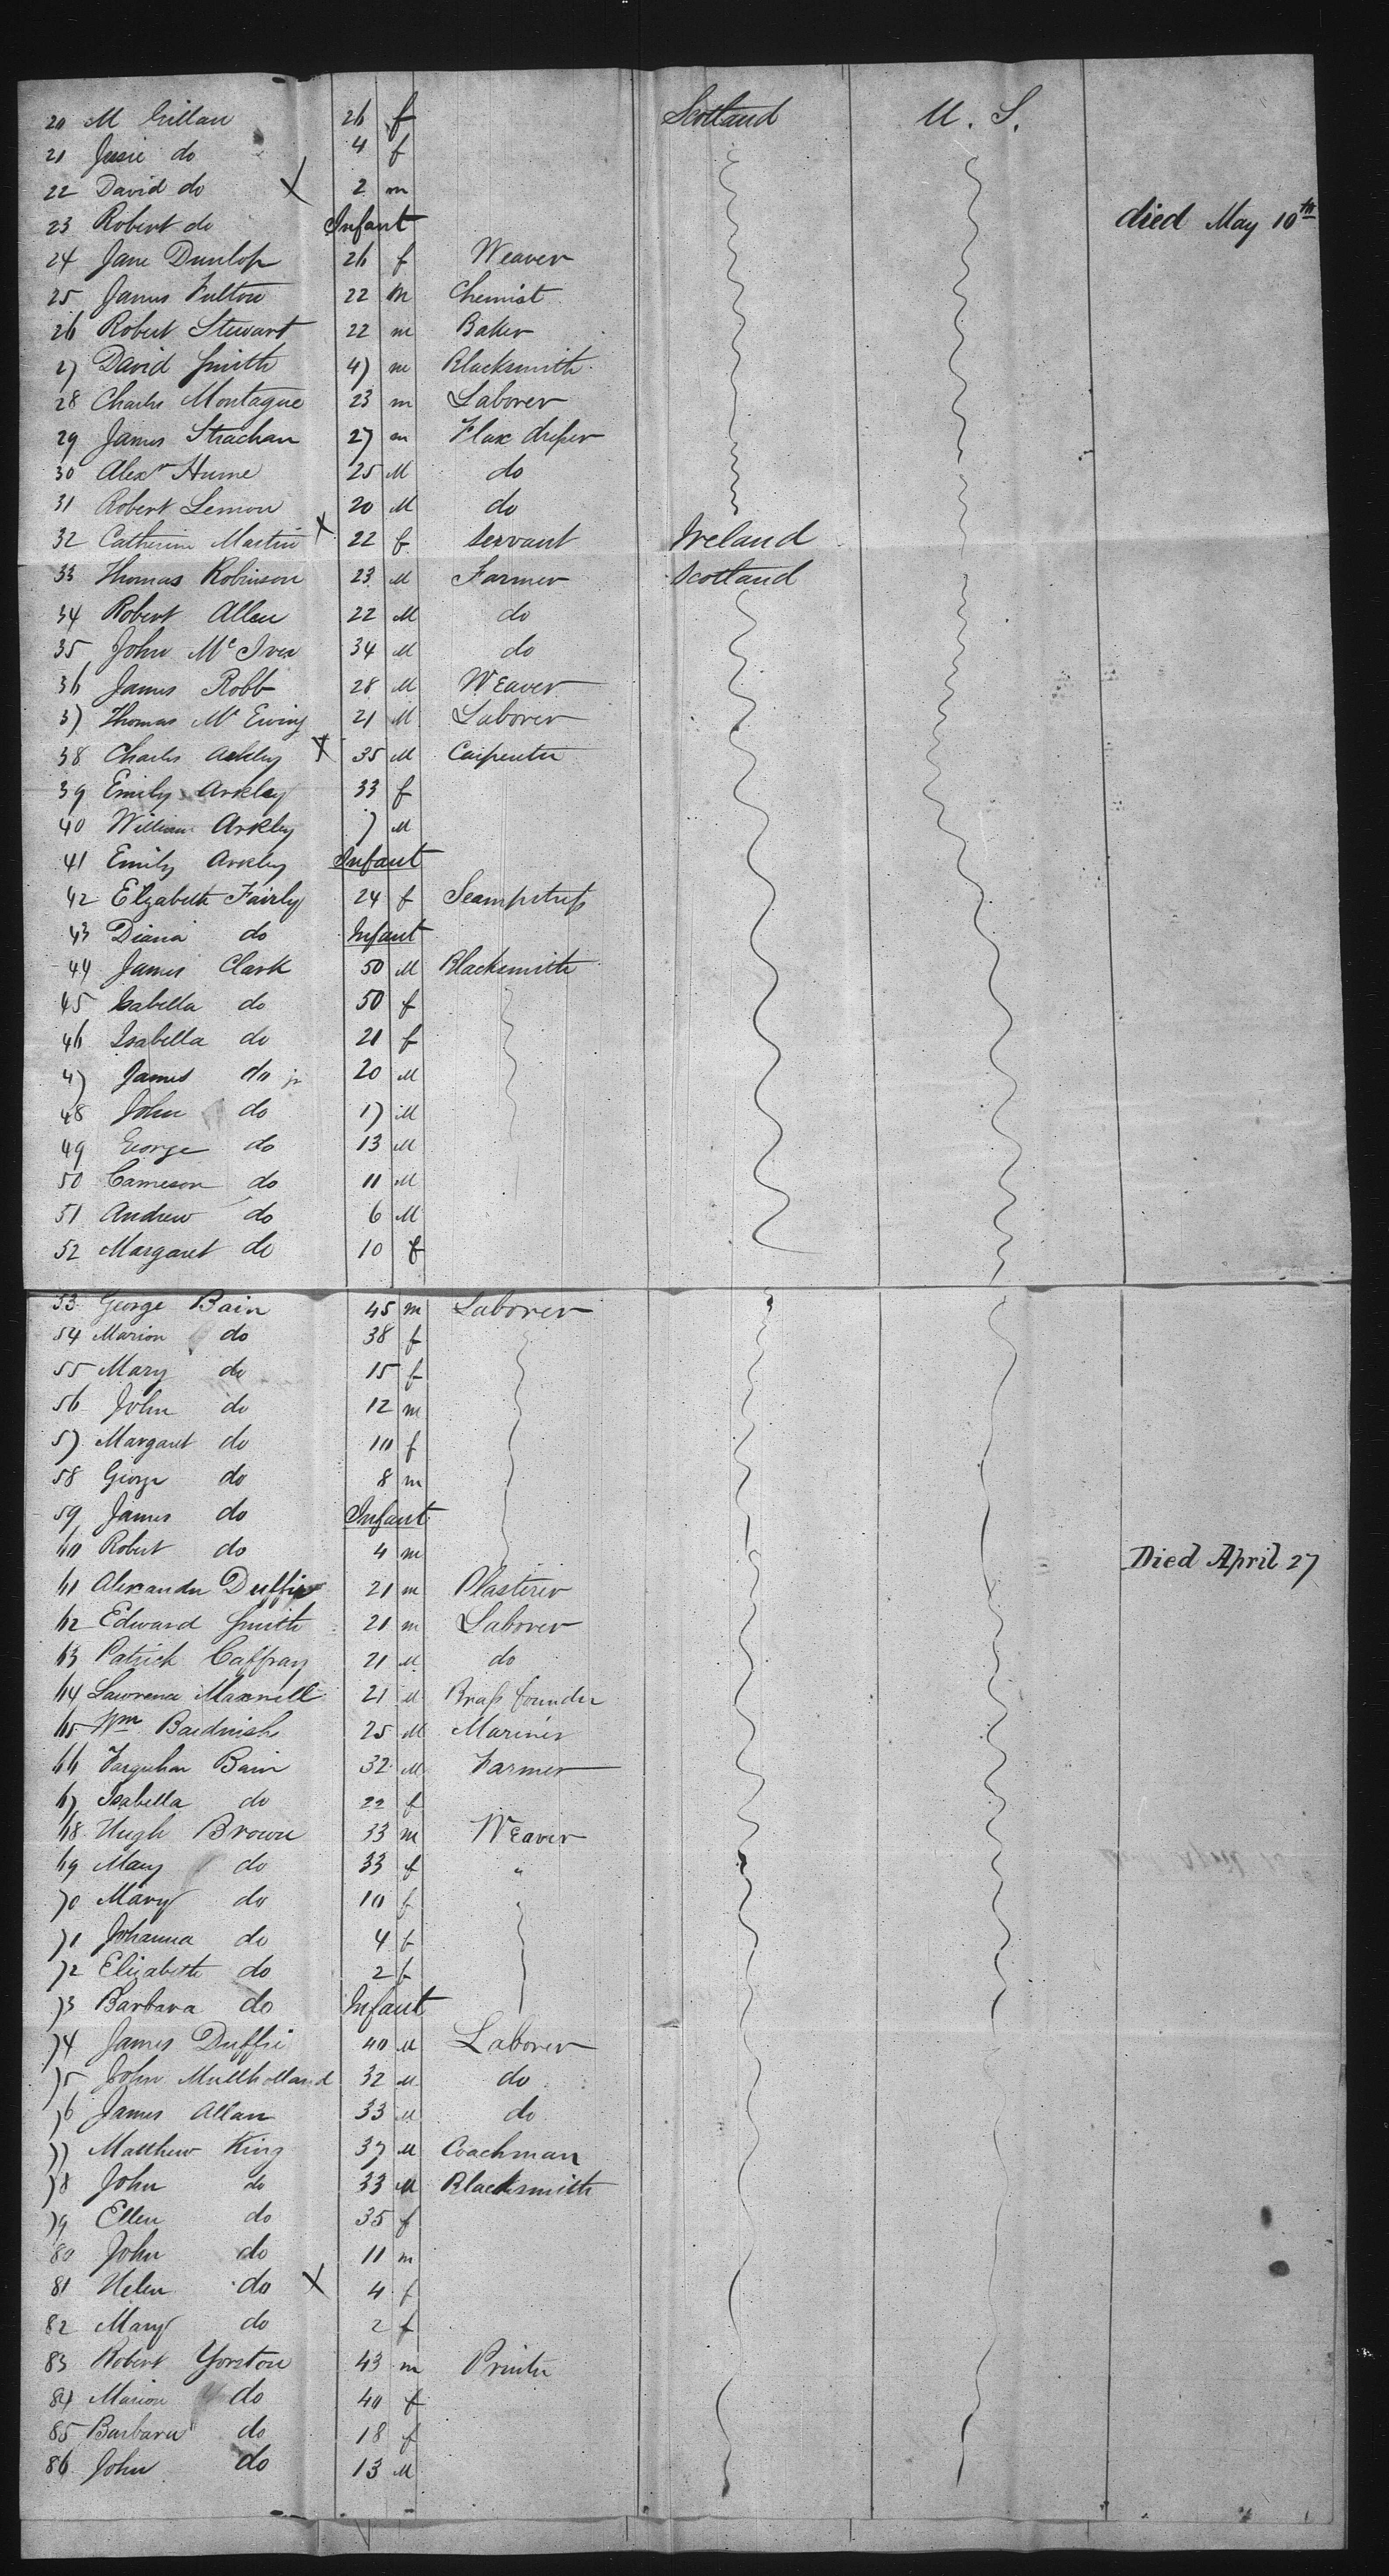 20 M Gillan 26 f Scotland U. S.
21 Jessie do 4 f
22 David do X 2 m
23 Robert do Infant died May 10th
24 Jane Dunlop 26 f Weaver
25 James Fulton 22 m Chemist
26 Robert Stewart 22 m Baker
27 David Smith 47 m Blacksmith
28 Charles Montague 23 m Laborer
29 James Strachan 27 m Flax dresser
30 Alexr Hume 25 M do
31 Robert Lemon 20 M do
32 Catherine Martin X 22 f Servant Ireland
33 Thomas Robinson 23 M Farmer Scotland
34 Robert Allen 22 M do
35 John McIver 34 M do
36 James Robb 28 M Weaver
37 Thomas McEwing 21 M Laborer
38 Charles Arkley X 35 M Carpenter
39 Emily Arkley 33 f
40 William Arkley 7 M
41 Emily Arkley Infant
42 Elizabeth Fairly 24 f Seampstress
43 Diana do Infant
44 James Clark 50 M Blacksmith
45 Isabella do 50 f
46 Isabella do 21 f
47 James do jr 20 M
48 John do 17 M
49 George do 13 M
50 Cameron do 11 M
51 Andrew do 6 M
52 Margaret do 10 f
53 George Bain 45 m Laborer
54 Marion do 38 f
55 Mary do 15 f
56 John do 12 m
57 Margaret do 10 f
58 George do 8 m
59 James do Infant
60 Robert do 4 m Died April 27
61 Alexander Duffie 21 m Plasterer
62 Edward Smith 21 m Laborer
63 Patrick Caffray 21 M do
64 Lawrence Maxwell 21 M Brass founder
65 Wm 25 M Mariner
66 Farquhar Bain 32 M Farmer
67 Isabella do 22 f
68 Hugh Brown 33 m Weaver
69 Mary do 33 f "
70 Mary do 10 f "
71 Johanna do 4 f
72 Elizabeth do 2 f
73 Barbara do Infant
74 James Duffie 40 M Laborer
75 John Mullholland 32 M do
76 James Allan 33 M do
77 Matthew King 37 M Coachman
78 John do 33 M Blacksmith
79 Ellen do 35 f
80 John do 11 m
81 Helen do X 4 f
82 Mary do 2 f
83 Robert Yorston 43 m Printer
84 Marion do 40 f
85 Barbara do 18 f
86 John do 13 M